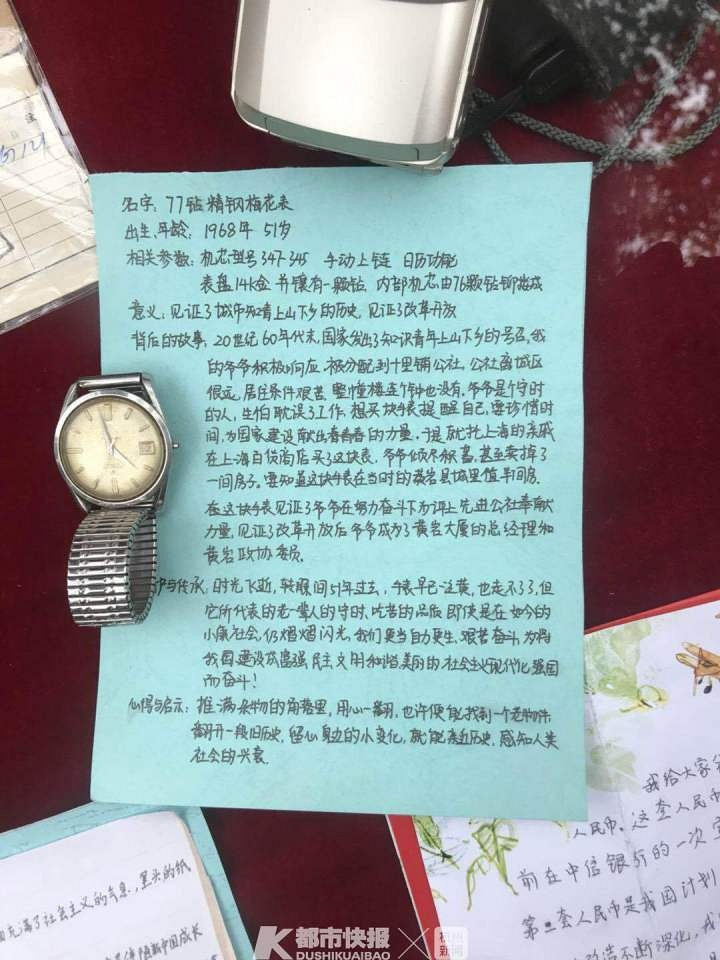 名字：77钻精钢梅花表
出生年龄：1968年 51岁
相关参数：机芯型号347-345 手动上链 日历功能
表盘14k金 并镶有一颗钻，内部机芯由76颗钻铆接成
意义：见证了城市知青上山下乡的历史，见证了改革开放
背后的故事：20世纪60年代末，国家发出了知识青年上山下乡的号召，我
的爷爷积极响应，被分配到十里铺公社，公社离城区
很远，居住条件艰苦，整幢楼连个钟也没有，爷爷是个守时
的人，生怕耽误了工作，想买块手表提醒自己，要珍惜时
间，为国家建设献出青春的力量，于是就托上海的亲戚
在上海百货商店买了这块表，爷爷倾尽积蓄，甚至卖掉了
一间房子。要知道这块手表在当时的黄岩县城里值半间房，
在这块手表见证了爷爷在努力奋斗下为评上先进公社奉献
力量，见证了改革开放后爷爷成为了黄岩大厦的总经理和
黄岩政协委员。
与传承：时光飞逝，转眼间51年过去，手表早已泛黄，也走不了了，但
它所代表的老一辈人的守时、吃苦的品质即使是在如今的
小康社会，仍熠熠闪光，我们更当自力更生，艰苦奋斗，为将
我国建设成富强民主文明和谐美丽的社会主义现代化强国
而奋斗！
心得与启示：推满杂物的角落里，用心一翻，也许便能找到一个老物件，
翻开一段旧历史，留心身边的小变化，就能亲近历史，感知人类
社会的兴衰。
我给大家
人民币，这套人民币
前在中信银行的一次
第三套人民币是我国计划
改造不断深化，我
充满了社会主义的气息，黑头的纸
新中国成长
都市快报
DUSHIKUAIBAO
杭州新闻